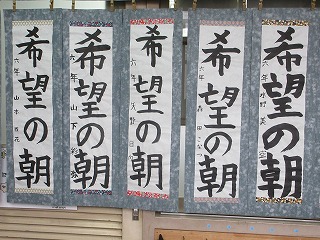 希望の朝
六年 山本
希望の朝
六年 山下
希望の朝
六年
希望の朝
六年 森田
希望の朝
六年 水野